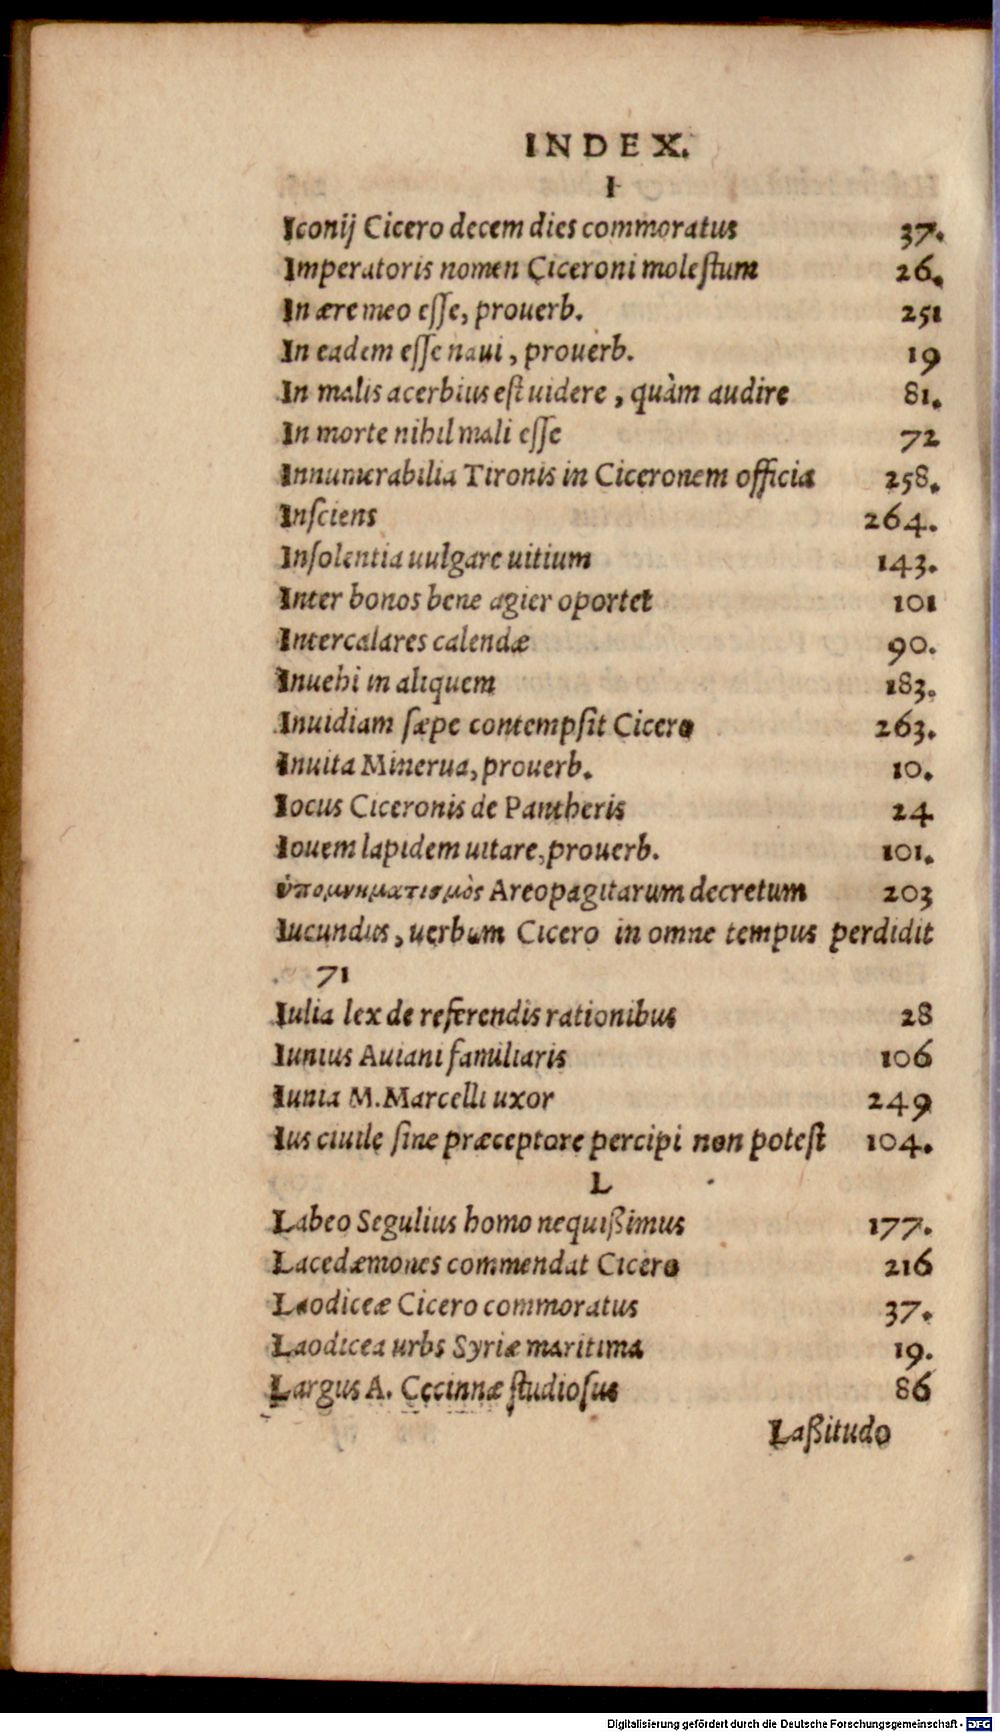 INDEX.
I
Iconij Cicero decem dies commoratus 37.
Imperatoris nomen Ciceroni molestum 26.
In ære meo esse, prouerb. 251
In eadem esse naui, prouerb. 19
In malis acerbius est uidere, quàm audire 81.
In morte nihil mali esse 72
Innumerabilia Tironis in Ciceronem officia 258.
Insciens 264.
Insolentia uulgare uitium 143.
Inter bonos bene agier oportet 101
Intercalares calendæ 90.
Inuehi in aliquem 183.
Inuidiam sæpe contempsit Cicero 263.
Inuita Minerua, prouerb. 10.
Iocus Ciceronis de Pantheris 24
Iouem lapidem uitare, prouerb. 101.
ὑπομνηματισμὸς Areopagitarum decretum 203
Iucundus, uerbum Cicero in omne tempus perdidit
71
Iulia lex de referendis rationibus 28
Iunius Auiani familiaris 106
Iunia M. Marcelli uxor 249
Ius ciuile sine præceptore percipi non potest 104.
L
Labeo Segulius homo nequißimus 177.
Lacedæmones commendat Cicero 216
Laodiceæ Cicero commoratus 37.
Laodicea urbs Syriæ maritima 19.
Largus A. Cecinnæ studiosus 86
Laßitudo
Digitalisierung gefördert durch die Deutsche Forschungsgemeinschaft - DFG